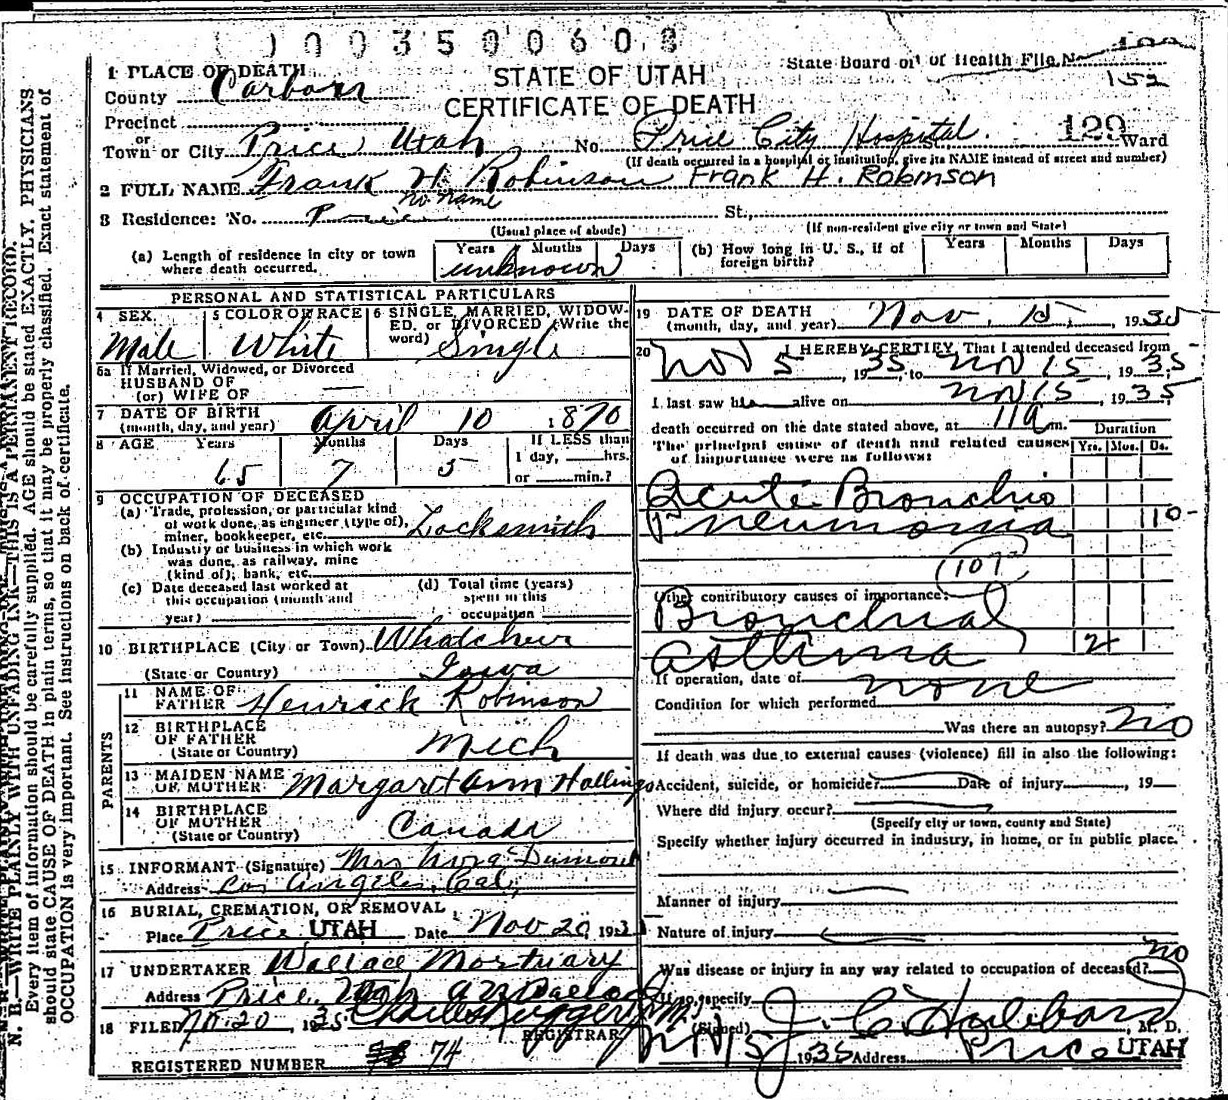 1003500608
1 PLACE OF DEATH
STATE OF UTAH
State Board of Health File No.
County Carbon
CERTIFICATE OF DEATH
152
Precinct
or
Town or City Price Utah No. Price City Hospital. 129 Ward
(If death occurred in a hospital or institution, give its NAME instead of street and number)
2 FULL NAME Frank H. Robinson Frank H. Robinson
no name
3 Residence: No. St.,
(Usual place of abode) (If non-resident give city or town and State)
(a) Length of residence in city or town where death occurred. Years Months Days unknown (b) How long in U. S., if of foreign birth? Years Months Days
PERSONAL AND STATISTICAL PARTICULARS
4 SEX. Male
5 COLOR OR RACE White
6 SINGLE, MARRIED, WIDOWED, or DIVORCED (Write the word) Single
6a If Married, Widowed, or Divorced
HUSBAND OF
(or) WIFE OF
7 DATE OF BIRTH (month, day, and year) April 10 1870
8 AGE Years Months Days If LESS than
1 day, hrs.
65 7 5 or min.?
9 OCCUPATION OF DECEASED
(a) Trade, profession, or particular kind
of work done, as engineer (type of),
miner, bookkeeper, etc. Locksmith
(b) Industry or business in which work
was done, as railway, mine
(kind of); bank, etc.
(c) Date deceased last worked at
this occupation (month and
year)
(d) Total time (years)
spent in this
occupation
10 BIRTHPLACE (City or Town) Whatcheer
(State or Country) Iowa
PARENTS
11 NAME OF FATHER Henrick Robinson
12 BIRTHPLACE OF FATHER (State or Country) Mich
13 MAIDEN NAME OF MOTHER Margaret Ann Hallings
14 BIRTHPLACE OF MOTHER (State or Country) Canada
15 INFORMANT (Signature) Mrs Nora Dumont
Address Los Angeles, Cal.
16 BURIAL, CREMATION, OR REMOVAL
Place Price UTAH Date Nov 20, 193
17 UNDERTAKER Wallace Mortuary
Address Price, Utah
18 FILED 20, 1935
REGISTRAR
REGISTERED NUMBER 74
19 DATE OF DEATH
(month, day, and year) Nov. 15, 1935
20 I HEREBY CERTIFY, That I attended deceased from
Nov 5, 1935, to Nov 15, 1935
I last saw h alive on Nov 15, 1935
death occurred on the date stated above, at 11a m.
The principal cause of death and related causes
of importance were as follows:
Duration
Yrs. Mos. Ds.
Acute Bronchio
Pneumonia 10
107
Other contributory causes of importance:
Bronchial
asthma 2
If operation, date of none
Condition for which performed
Was there an autopsy? No
If death was due to external causes (violence) fill in also the following:
Accident, suicide, or homicide? Date of injury , 19
Where did injury occur?
(Specify city or town, county and State)
Specify whether injury occurred in industry, in home, or in public place.
Manner of injury
Nature of injury
Was disease or injury in any way related to occupation of deceased? no
If so, specify
(Signed) J. C. Hubbard, M. D.
Nov 15 1935 Address Price UTAH
N. B.—WRITE PLAINLY WITH UNFADING INK—THIS IS A PERMANENT RECORD.
Every item of information should be carefully supplied. AGE should be stated EXACTLY. PHYSICIANS
should state CAUSE OF DEATH in plain terms, so that it may be properly classified. Exact statement of
OCCUPATION is very important. See instructions on back of certificate.